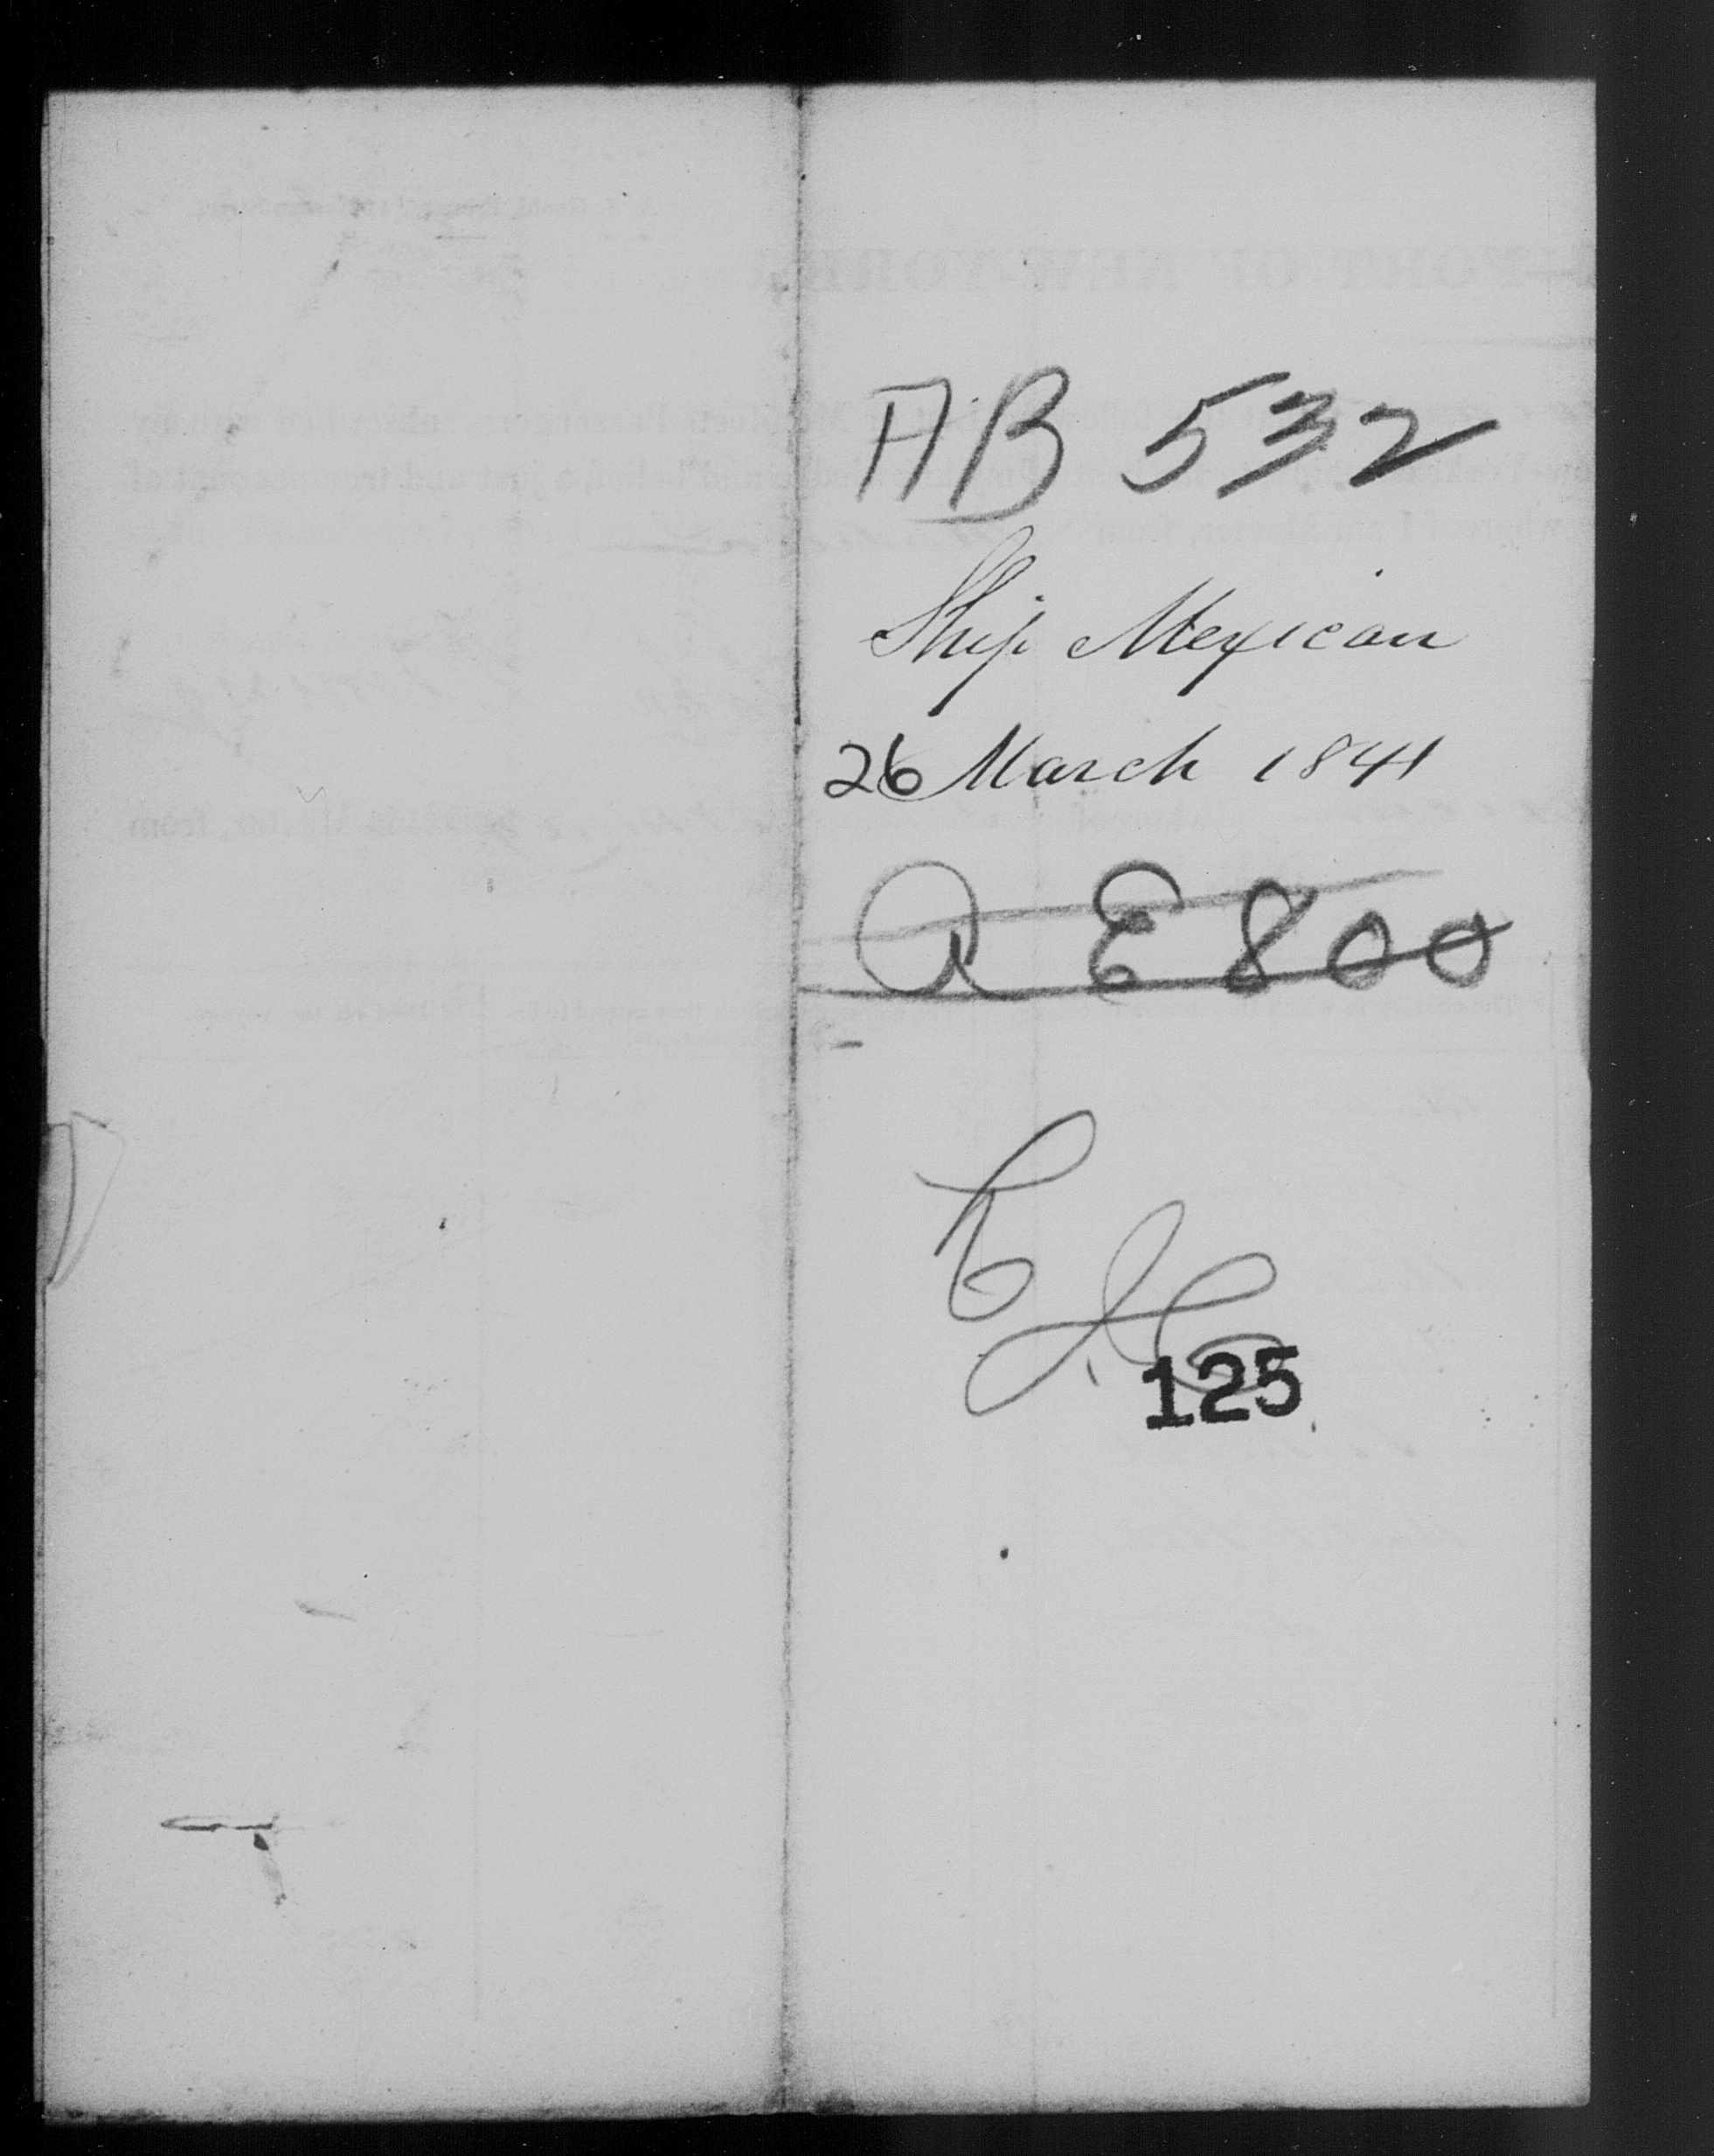 AB 532
Ship Mexican
26 March 1841
A E 800
125